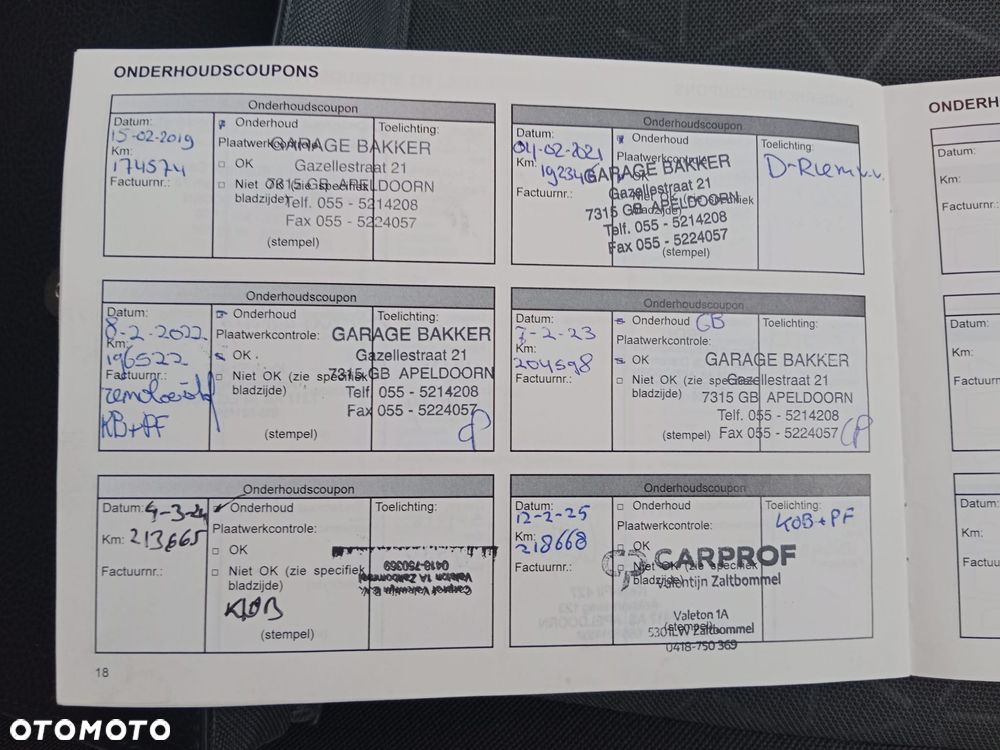 ONDERHOUDSCOUPONS
Onderhoudscoupon
Datum:
15-02-2019
Km:
174574
Factuurnr.:
Onderhoud
Plaatwerkcontrole:
OK
Niet OK (zie specifiek
bladzijde)
(stempel)
Toelichting:
GARAGE BAKKER
Gazellestraat 21
7315 GB APELDOORN
Telf. 055 - 5214208
Fax 055 - 5224057
Onderhoudscoupon
Datum:
04-02-2021
Km:
192346
Factuurnr.:
Onderhoud
Plaatwerkcontrole:
OK
Niet OK (zie specifiek
bladzijde)
(stempel)
Toelichting:
D-Riem v.v.
GARAGE BAKKER
Gazellestraat 21
7315 GB APELDOORN
Telf. 055 - 5214208
Fax 055 - 5224057
Onderhoudscoupon
Datum:
8-2-2022
Km:
196522
Factuurnr.:
KB+PF
Onderhoud
Plaatwerkcontrole:
OK
Niet OK (zie specifiek
bladzijde)
(stempel)
Toelichting:
GARAGE BAKKER
Gazellestraat 21
7315 GB APELDOORN
Telf. 055 - 5214208
Fax 055 - 5224057
Onderhoudscoupon
Datum:
7-2-23
Km:
204598
Factuurnr.:
Onderhoud GB
Plaatwerkcontrole:
OK
Niet OK (zie specifiek
bladzijde)
(stempel)
Toelichting:
GARAGE BAKKER
Gazellestraat 21
7315 GB APELDOORN
Telf. 055 - 5214208
Fax 055 - 5224057
Onderhoudscoupon
Datum: 4-3-24
Km: 213665
Factuurnr.:
Onderhoud
Plaatwerkcontrole:
OK
Niet OK (zie specifiek
bladzijde)
KOB
(stempel)
Toelichting:
Carprof Valentijn B.V.
Valeton 1A Zaltbommel
0418-750369
Onderhoudscoupon
Datum:
12-2-25
Km:
218668
Factuurnr.:
Onderhoud
Plaatwerkcontrole:
OK
Niet OK (zie specifiek
bladzijde)
(stempel)
Toelichting:
KOB + PF
CARPROF
Valentijn Zaltbommel
Valeton 1A
5301LW Zaltbommel
0418-750 369
18
ONDERH
Datum:
Km:
Factuurnr.:
Datum:
Km:
Factuurn
Datum:
Km:
Factuurn
OTOMOTO